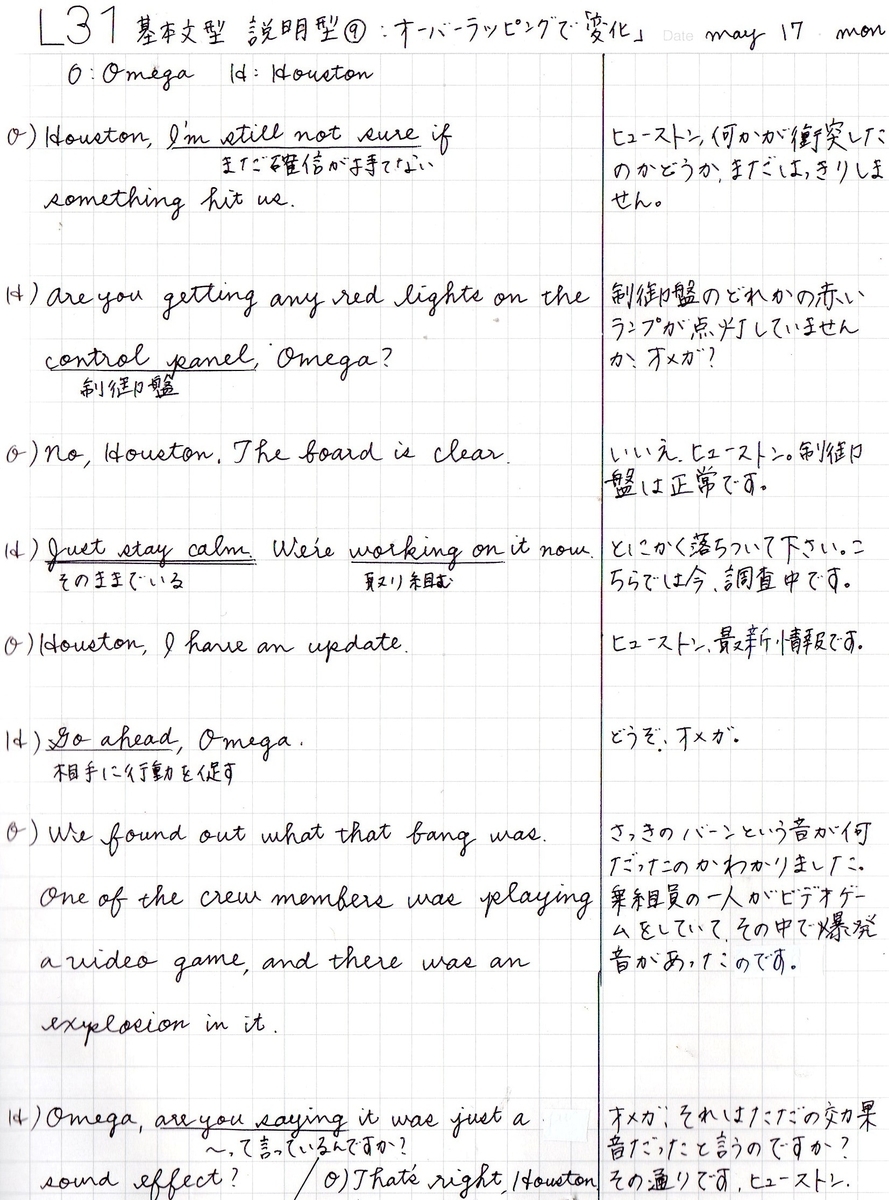 L31 基本文型 説明型⑨:オーバーラッピングで「変化」 Date may 17 mon
O: Omega H: Houston
O) Houston, I'm still not sure if
まだ確信が持てない
something hit us.
ヒューストン, 何かが衝突した
のかどうか, まだはっきりしま
せん。
H) Are you getting any red lights on the
control panel, Omega?
制御盤
制御盤のどれかの赤い
ランプが点灯していません
か、オメガ?
O) No, Houston. The board is clear.
いいえ、ヒューストン。制御
盤は正常です。
H) Just stay calm. We're working on it now.
そのままでいる 取り組む
とにかく落ちついて下さい。こ
ちらでは今、調査中です。
O) Houston, I have an update.
ヒューストン、最新情報です。
H) Go ahead, Omega.
相手に行動を促す
どうぞ、オメガ。
O) We found out what that bang was.
One of the crew members was playing
a video game, and there was an
explosion in it.
さっきのバーンという音が何
だったのかわかりました。
乗組員の一人がビデオゲー
ムをしていて、その中で爆発
音があったのです。
H) Omega, are you saying it was just a
〜って言っているんですか?
sound effect? / O) That's right, Houston
オメガ、それはただの効果
音だったと言うのですか?
その通りです, ヒューストン.